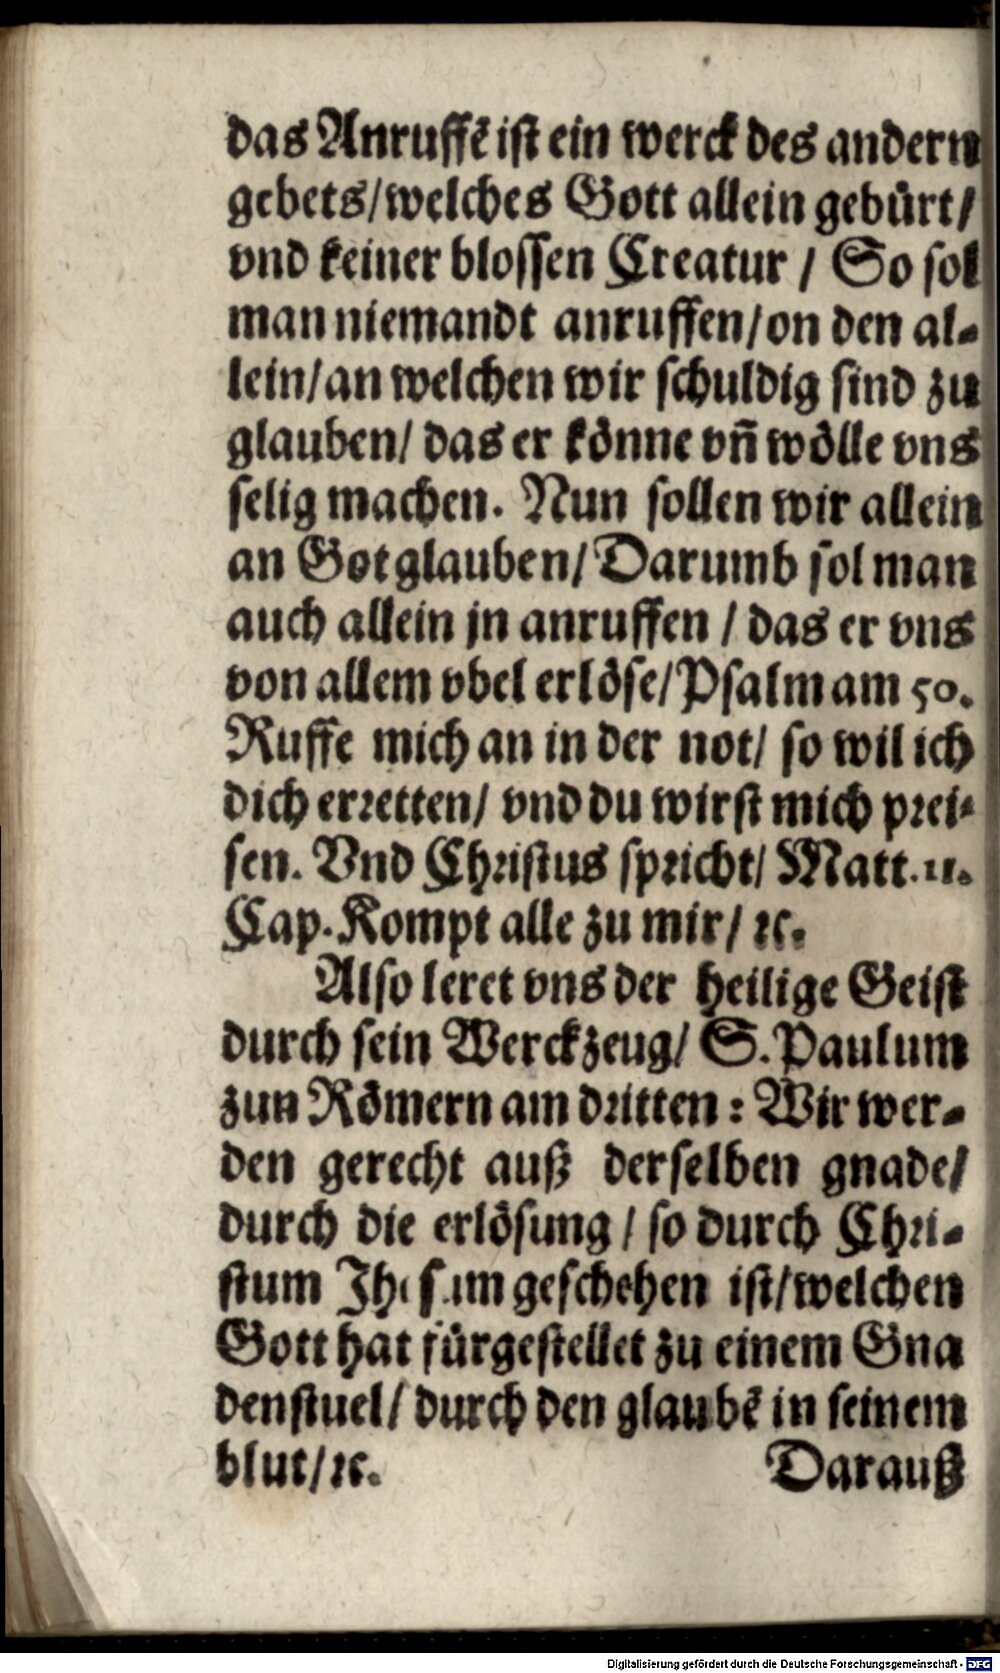 das Anruffē ist ein werck des andern
gebets/welches Gott allein gebürt/
vnd keiner blossen Creatur / So sol
man niemandt anruffen/on den al-
lein/an welchen wir schuldig sind zu
glauben/ das er könne vn̄ wölle vns
selig machen. Nun sollen wir allein
an Got glauben/ Darumb sol man
auch allein jn anruffen / das er vns
von allem vbel erlöse/ Psalm am 50.
Ruffe mich an in der not/ so wil ich
dich erretten/ vnd du wirst mich prei-
sen. Vnd Christus spricht/ Matt. 11.
Cap. Kompt alle zu mir/ ꝛc.
Also leret vns der heilige Geist
durch sein Werckzeug/ S. Paulum
zun Römern am dritten : Wir wer-
den gerecht auß derselben gnade/
durch die erlösung / so durch Chri-
stum Jhesum geschehen ist/welchen
Gott hat fürgestellet zu einem Gna
denstuel/ durch den glaubē in seinem
blut/ꝛc. Darauß
Digitalisierung gefördert durch die Deutsche Forschungsgemeinschaft - DFG